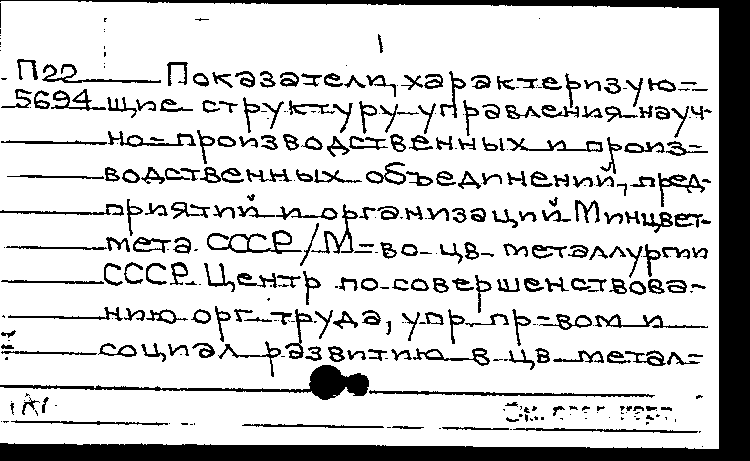 1
П22 Показатели, характеризую=
5694 щие структуру управления науч-
но=производственных и произ=
водственных объединений, пред-
приятий и организаций Минцвет-
мета СССР / М=во цв. металлургии
СССР. Центр по совершенствова-
нию орг. труда, упр. пр=вом и
социал. развитию в цв. метал=
См. след. карт.